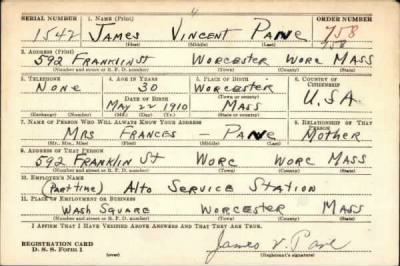 SERIAL NUMBER 1. NAME (Print) ORDER NUMBER
1542 JAMES VINCENT PANE 758
(First) (Middle) (Last) 758
2. ADDRESS (Print)
592 FRANKLIN ST WORCESTER WORC MASS
(Number and street or R. F. D. number) (Town) (County) (State)
3. TELEPHONE 4. AGE IN YEARS 5. PLACE OF BIRTH 6. COUNTRY OF CITIZENSHIP
NONE 30 WORCESTER
DATE OF BIRTH (Town or county)
MAY 22 1910 MASS U.S.A
(Exchange) (Number) (Mo.) (Day) (Yr.) (State or country)
7. NAME OF PERSON WHO WILL ALWAYS KNOW YOUR ADDRESS 8. RELATIONSHIP OF THAT PERSON
MRS FRANCES — PANE MOTHER
(Mr., Mrs., Miss) (First) (Middle) (Last)
9. ADDRESS OF THAT PERSON
592 FRANKLIN ST WORC WORC MASS
(Number and street or R. F. D. number) (Town) (County) (State)
10. EMPLOYER'S NAME
(PART TIME) ALTO SERVICE STATION
11. PLACE OF EMPLOYMENT OR BUSINESS
WASH SQUARE WORCESTER MASS
(Number and street or R. F. D. number) (Town) (County) (State)
I AFFIRM THAT I HAVE VERIFIED ABOVE ANSWERS AND THAT THEY ARE TRUE.
REGISTRATION CARD James V. Pane
D. S. S. Form 1 (over) (Registrant's signature)